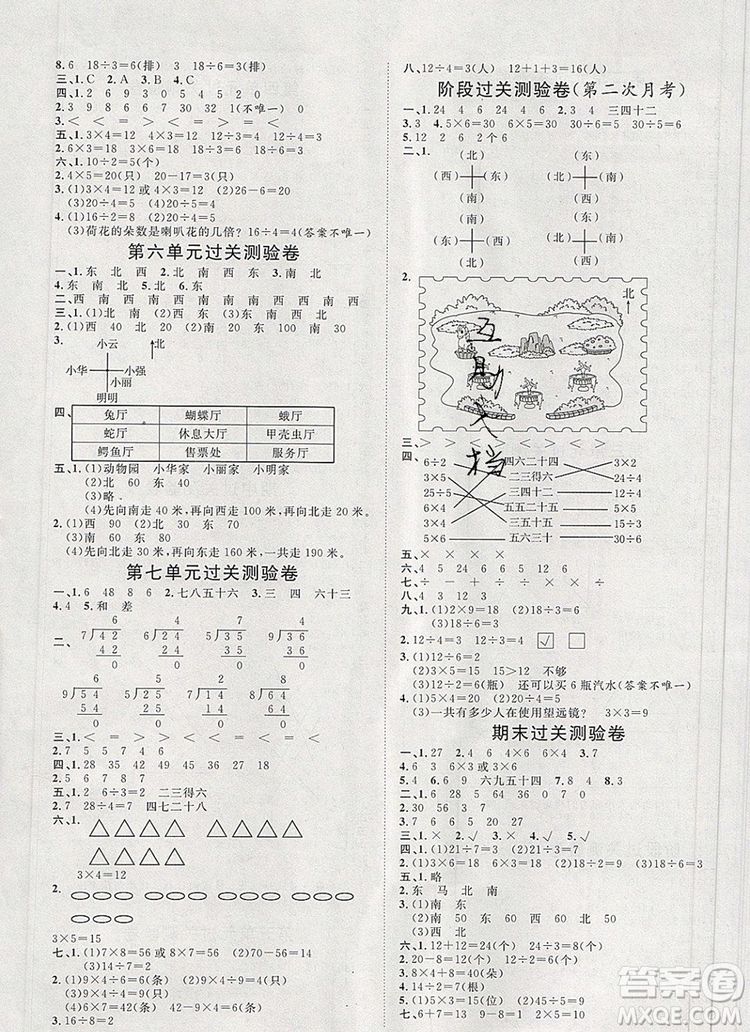 8.6　18÷3=6(排)　3　18÷6=3(排)
三、1.C　2.A　3.B　4.C
四、1.10　12　6　24　5　8
2.3　9　8　6　9　7　30　32　1(不唯一)
3.＜　＜　＞　＜　＞　＜　＜　＝
五、1.3×4=12　4×3=12　12÷3=4　12÷4=3
2.6×3=18　3×6=18　18÷3=6　18÷6=3
六、1.10÷2=5(个)
2.4×5=20(只)　20-17=3(只)
3.(1)3×4=12或4×3=12　(2)26-6=20
4.(1)16÷2=8　(2)16÷8=2
(3)荷花的朵数是喇叭花的几倍?　16÷4=4(答案不唯一)
第六单元过关测验卷
一、1.东　北　西　2.北　南　西　东　3.南　北
4.东　5.南　北　6.东
二、西　西　南　西　南　西　南　西　南　西　南　西
三、1.(1)南　西　(2)东　西　(3)东　南　西　北
2.(1)西　40　北　20　(2)南　50　东　20
3.
小云　北
小华　小强
小丽
明明
四、
兔厅　蝴蝶厅　蛾厅
蛇厅　休息大厅　甲壳虫厅
鳄鱼厅　售票处　服务厅
五、1.(1)动物园　小华家　小丽家　小明家
(2)北　60　东　40
(3)东
(4)先向南走40米,再向西走40米,再向南走20米。
2.(1)西　90　(2)北　30　东　70
(3)南　60　东　90
(4)先向北走30米,再向东走160米,一共走190米。
第七单元过关测验卷
一、1.6　48　8　6　2.七八五十六　3.三　四　六十三
4.4　5.和　差
二、
6　6　6　4
7)42　7)42　4)24　6)24
42　42　24　24
0　0　0　0
6　9　8　9
9)54　6)54　8)64　9)81
54　54　64　81
0　0　0　0
三、1.＜　＝　＝　＞　＝　＜　＜　＝　＜
2.7　5　7　4　5　6　8
四、18　24　5　3　56　9　27　28　3
五、1.2　6÷2=3　二三得六
2.7　28÷7=4　四七二十八
六、1.
3×4=12
2.
3×5=15
七、1.(1)7×8=56或8×7=56　(2)21÷7=3
(3)14÷7=2
2.(1)9×4=36(条)　(2)9×6=54(条)
(4)6×7=42(条)　(5)9×5=45(条)
3.16÷8=2
八、12÷4=3(人)　12+1+3=16(人)
阶段过关测验卷(第二次月考)
一、1.24　4　6　24　4　6　2.3　4　三四十二
3.3　4.6×5=30　6×5=30　30÷5=6
5.12　6　2　2个6
二、1.
(北)　(东)
(西)　(东)　(北)　(南)
(南)　(西)
(西)　(南)
(南)　(北)　(东)　(西)
(东)　(北)
2.
北
三、＜　＞　＜　＞　＞　＜　＞　＜　＞
四、
6÷2　四六二十四　3×2
3×2　二三得六　24÷4
25÷5　三四十二　2×6
6×4　五五二十五　5×5
12÷3　三五十五　5×3
5×6　五六三十　30÷6
五、×　×　×　×
六、4　5　6　4　6　12
七、－　÷　＋　×　÷　×　－　＋
八、＝　＜　＜　＞　＞　＞
九、1.(1)2×9=18　(2)18÷6=3
(3)18÷6=3
2.12÷4=3　12÷3=4　☑　☐
3.(1)12÷6=2
(2)3×5=15　15＞12　不够
(3)12÷2=6(瓶)　还可以买6瓶汽水(答案不唯一)
4.(1)5×4=20　(2)20÷4=5
(3)一共有多少人在使用望远镜?　3×3=9
期末过关测验卷
一、1.27　2.4　6　4×6　6×4　3.7
4.5　4　6.9　六九五十四　7.4　3
二、1.＜　＜　＞　＞　＜　＝
2.30　56　7　1　63　9
3.7　7　6　6　20　20　5　7
三、1.×　2.√　3.×　4.√　5.√
四、1.(1)21÷7=3　(2)21÷3=7
2.(1)6×3=18　(2)18÷9=2
五、1.略
2.东　马　北　南
3.(1)南　东
(2)南　50　东　60　西　50　北　60
(3)西
六、1.12+12=24(只)　24÷4=6(只)
2.20-8=12(个)　12÷2=6(个)
3.6×4=24　24÷8=3(朵)
4.2×7=14　14÷2=7(根)
5.(1)5×3=15(位)　(2)9÷3=3(个)
七、6÷2=3(个)　3×4=12(个)
五
12
档
答案圈
MXQE.COM